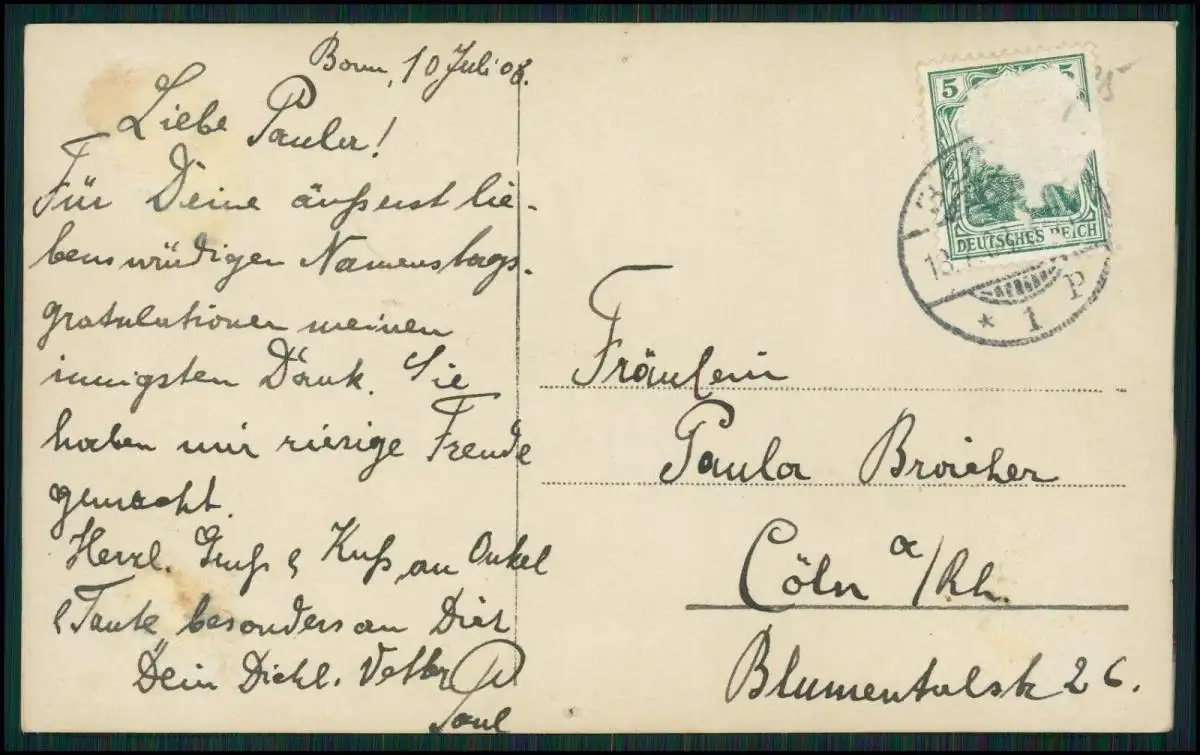 Bonn, 10 Juli 08.
Liebe Paula!
Für Deine äußerst lie-
benswürdigen Namenstags-
gratulationen meinen
innigsten Dank. Sie
haben mir riesige Freude
gemacht.
Herzl. Gruß & Kuß an Onkel
& Tante besonders an Dich
Dein Dickl. Vetter
Paul
5
DEUTSCHES REICH
* 1 P
Fräulein
Paula Broicher
Cöln a/Rh.
Blumentalstr 26.